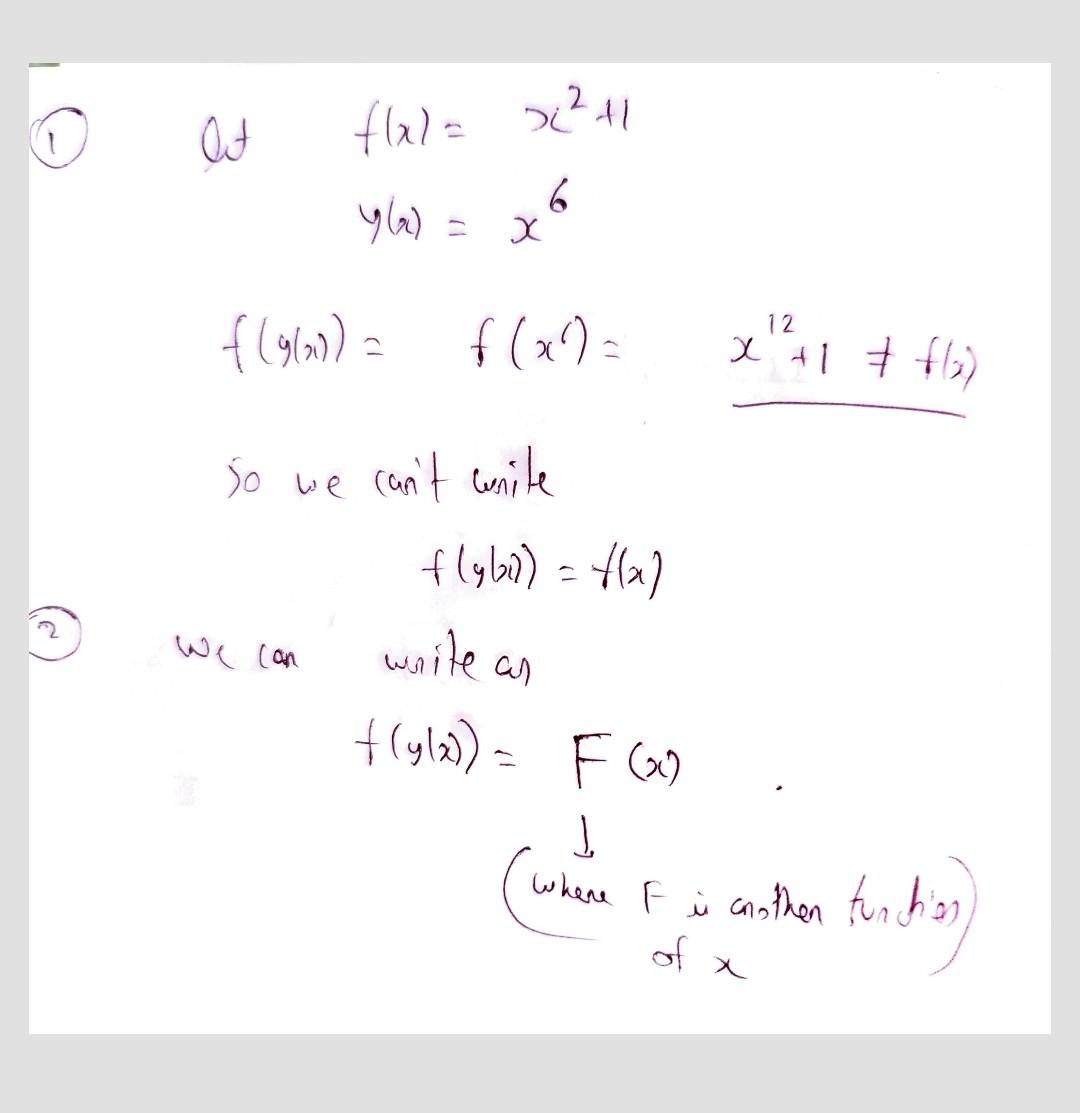 ① let f(x) = x² +1
y(x) = x⁶
f(y(x)) = f(x⁶) = x¹² +1 ≠ f(x)
so we can't write
f(y(x)) = f(x)
② we can write as
f(y(x)) = F(x) .
↓
(where F is another function)
of x